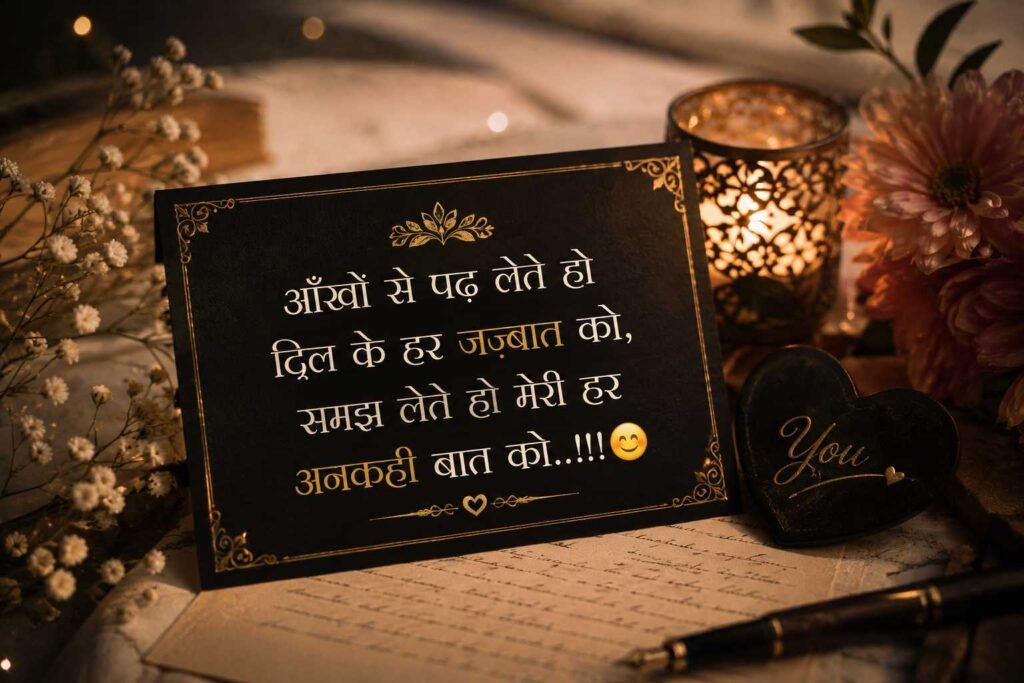 आँखों से पढ़ लेते हो
दिल के हर जज़्बात को,
समझ लेते हो मेरी हर
अनकही बात को..!!!😊
You